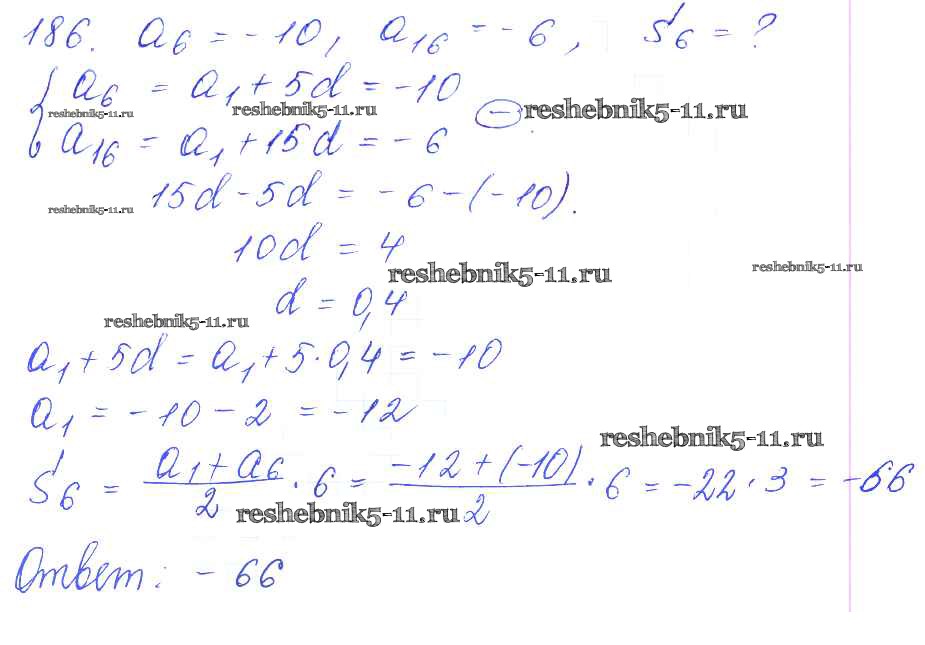 186. a₆ = -10, a₁₆ = -6, S₆ = ?
a₆ = a₁ + 5d = -10
reshebnik5-11.ru reshebnik5-11.ru – reshebnik5-11.ru
a₁₆ = a₁ + 15d = -6
15d - 5d = -6 - (-10).
reshebnik5-11.ru
10d = 4
reshebnik5-11.ru reshebnik5-11.ru
d = 0,4
reshebnik5-11.ru
a₁ + 5d = a₁ + 5·0,4 = -10
a₁ = -10 - 2 = -12
reshebnik5-11.ru
S₆ = (a₁ + a₆)/2 · 6 = (-12 + (-10))/2 · 6 = -22 · 3 = -66
reshebnik5-11.ru
Ответ: - 66